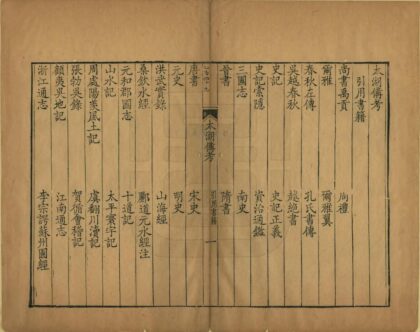 太湖備考
引用書籍
尚書禹貢 周禮
爾雅 爾雅翼
春秋左傳 孔氏書傳
吳越春秋 越絕書
史記 史記正義
史記索隱 資治通鑑
三國志 南史
晉書 隋書
太湖備考 引用書籍 一
唐書 宋史
元史 明史
洪武實錄 山海經
桑欽水經 酈道元水經注
元和郡國志 十道記
山水記 太平寰宇記
周處陽羨風土記 虞翻川瀆記
張勃吳錄 賀循會稽記
顧夷吳地記 江南通志
浙江通志 李宗諤蘇州圖經